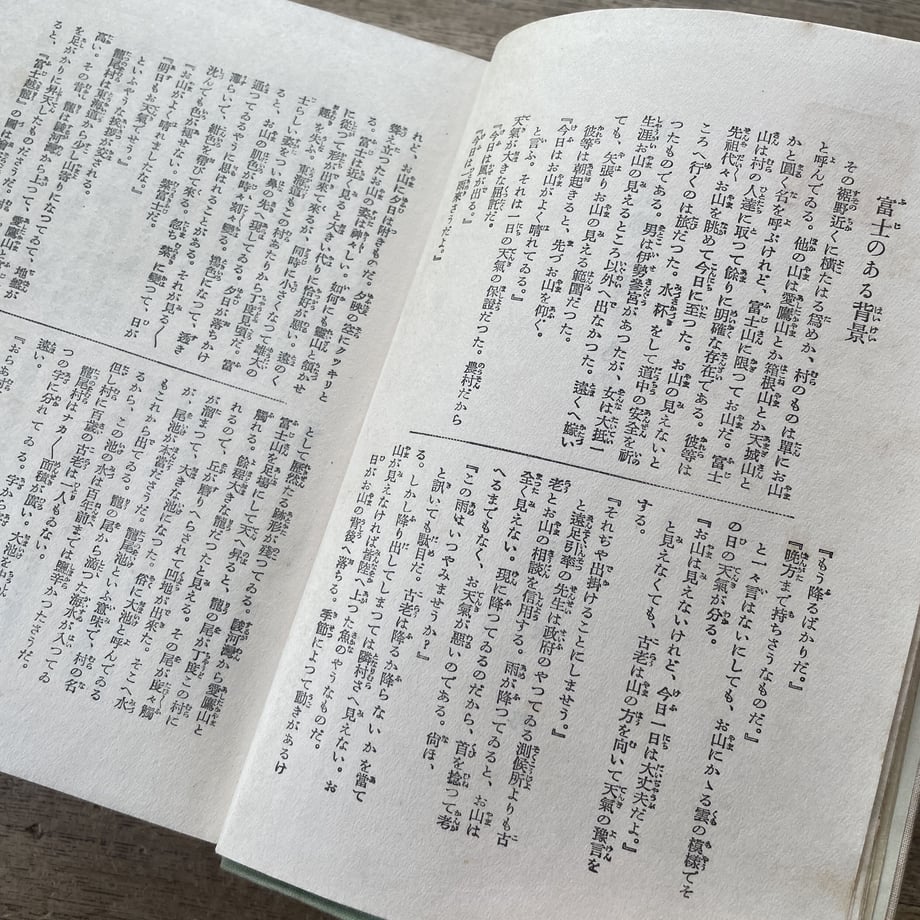 富士のある背景
その裾野近くに横たはる爲めか、村のものは單にお山
と呼んでゐる。他の山は愛鷹山とか箱根山とか天城山と
かと圓く名を呼ぶけれど、富士山に限つてお山だ。富士
山は村の人達に取つて餘りに明確な存在である。彼等は
先祖代々お山を眺めて今日に至つた。お山の見えないと
ころへ行くのは旅だつた。水杯をして道中の安全を祈
つたものである。男は伊勢參宮があつたが、女は大抵一
生涯お山の見えるところ以外へ出なかつた。遠くへ嫁い
ても、矢張りお山の見える範圍だつた。
彼等は朝起きると、先づお山を仰ぐ。
『今日はお山がよく晴れてゐる。』
と言ふ。それは一日の天氣の保證だつた。農村だから
天氣が大きな屈託だ。
『今日は風が出る。』
『今日は一雨來さうだよ。』
『もう降るばかりだ。』
『晩方まで持ちさうなものだ。』
と一々言はないにしても、お山にかゝる雲の模樣でそ
の日の天氣が分る。
『お山は見えないけれど、今日一日は大丈夫だよ。』
と見えなくても、古老は山の方を向いて天氣の豫言を
する。
『それぢや出掛けることにしませう。』
と遠足引率の先生は政府のやつてゐる測候所よりも古
老とお山の相談を信用する。雨が降つてゐると、お山は
全く見えない。現に降つてゐるのだから、首を捻つて考
へるまでもなく、お天氣が惡いのである。尙ほ、
『この雨はいつやみませうか？』
と訊いても駄目だ。古老は降るか降らないかを當て
る。しかし降り出してしまつては隣村さへ見えない。お
山が見えなければ皆陸へ上つた魚のやうなものだ。
日がお山の背後へ落ちる。季節によつて動きがあるけ
れど、お山に夕日は附きものだ。夕映の空にクツキリと
聳え立つたお山の姿は神々しい。如何にも靈山と頷かせ
る。富士は近く見ると大きい代りに恰好が惡い。遠のく
に從つて形は出來て來るが、同時に小さくなつて雄大の
趣を欠く。東海道もこの村あたりから丁度見頃だ。富
士らしい姿をつい鼻の先へ現してゐる。夕日が落ちかけ
ると、お山の肌色が時々刻々變る。
通つてゐるやうに思はれることがある。それが見る〳〵
薄らいで、紺色を帶びて來る。忽ち、紫に變つて、日が
沈んでも色が褪せない。紫富士だ。
『お山がよく晴れましたな。』
『明日もお天氣でせう。』
といふやうな挨拶が交される。
龍尾村は東海道から少し山寄りになつてゐて、地盤が
高い。その昔、龍は駿河灘から上つて、愛鷹山と
を足がかりに昇天したものださうだ。
ると、『富士越龍』の圖は
として歷然たる跡形が殘つてゐる。駿河灘から愛鷹山と
富士山を足場にして天へ昇ると、龍の尾が丁度この村に
觸れる。餘程大きな龍だつたと見える。その尾が度々觸
れるので、丘が磨りへらされて凹地が出來た。そこへ水
が溜まつて、大きな池になつた。俗に大池と呼んでゐる
が、尾池が本當ださうだ。龍の尾池といふ意味で、村の名
もこれから出てゐる。龍の尾から滴つた海水が入つてゐ
るから、この池の水は百年前までは鹽辛かつたさうだ。
但し村に百歲の古老は一人もゐない。
龍尾村はナカ〳〵面積が廣い。大池を
つの字に分れてゐる。字から字
遠い。
『おらあ村